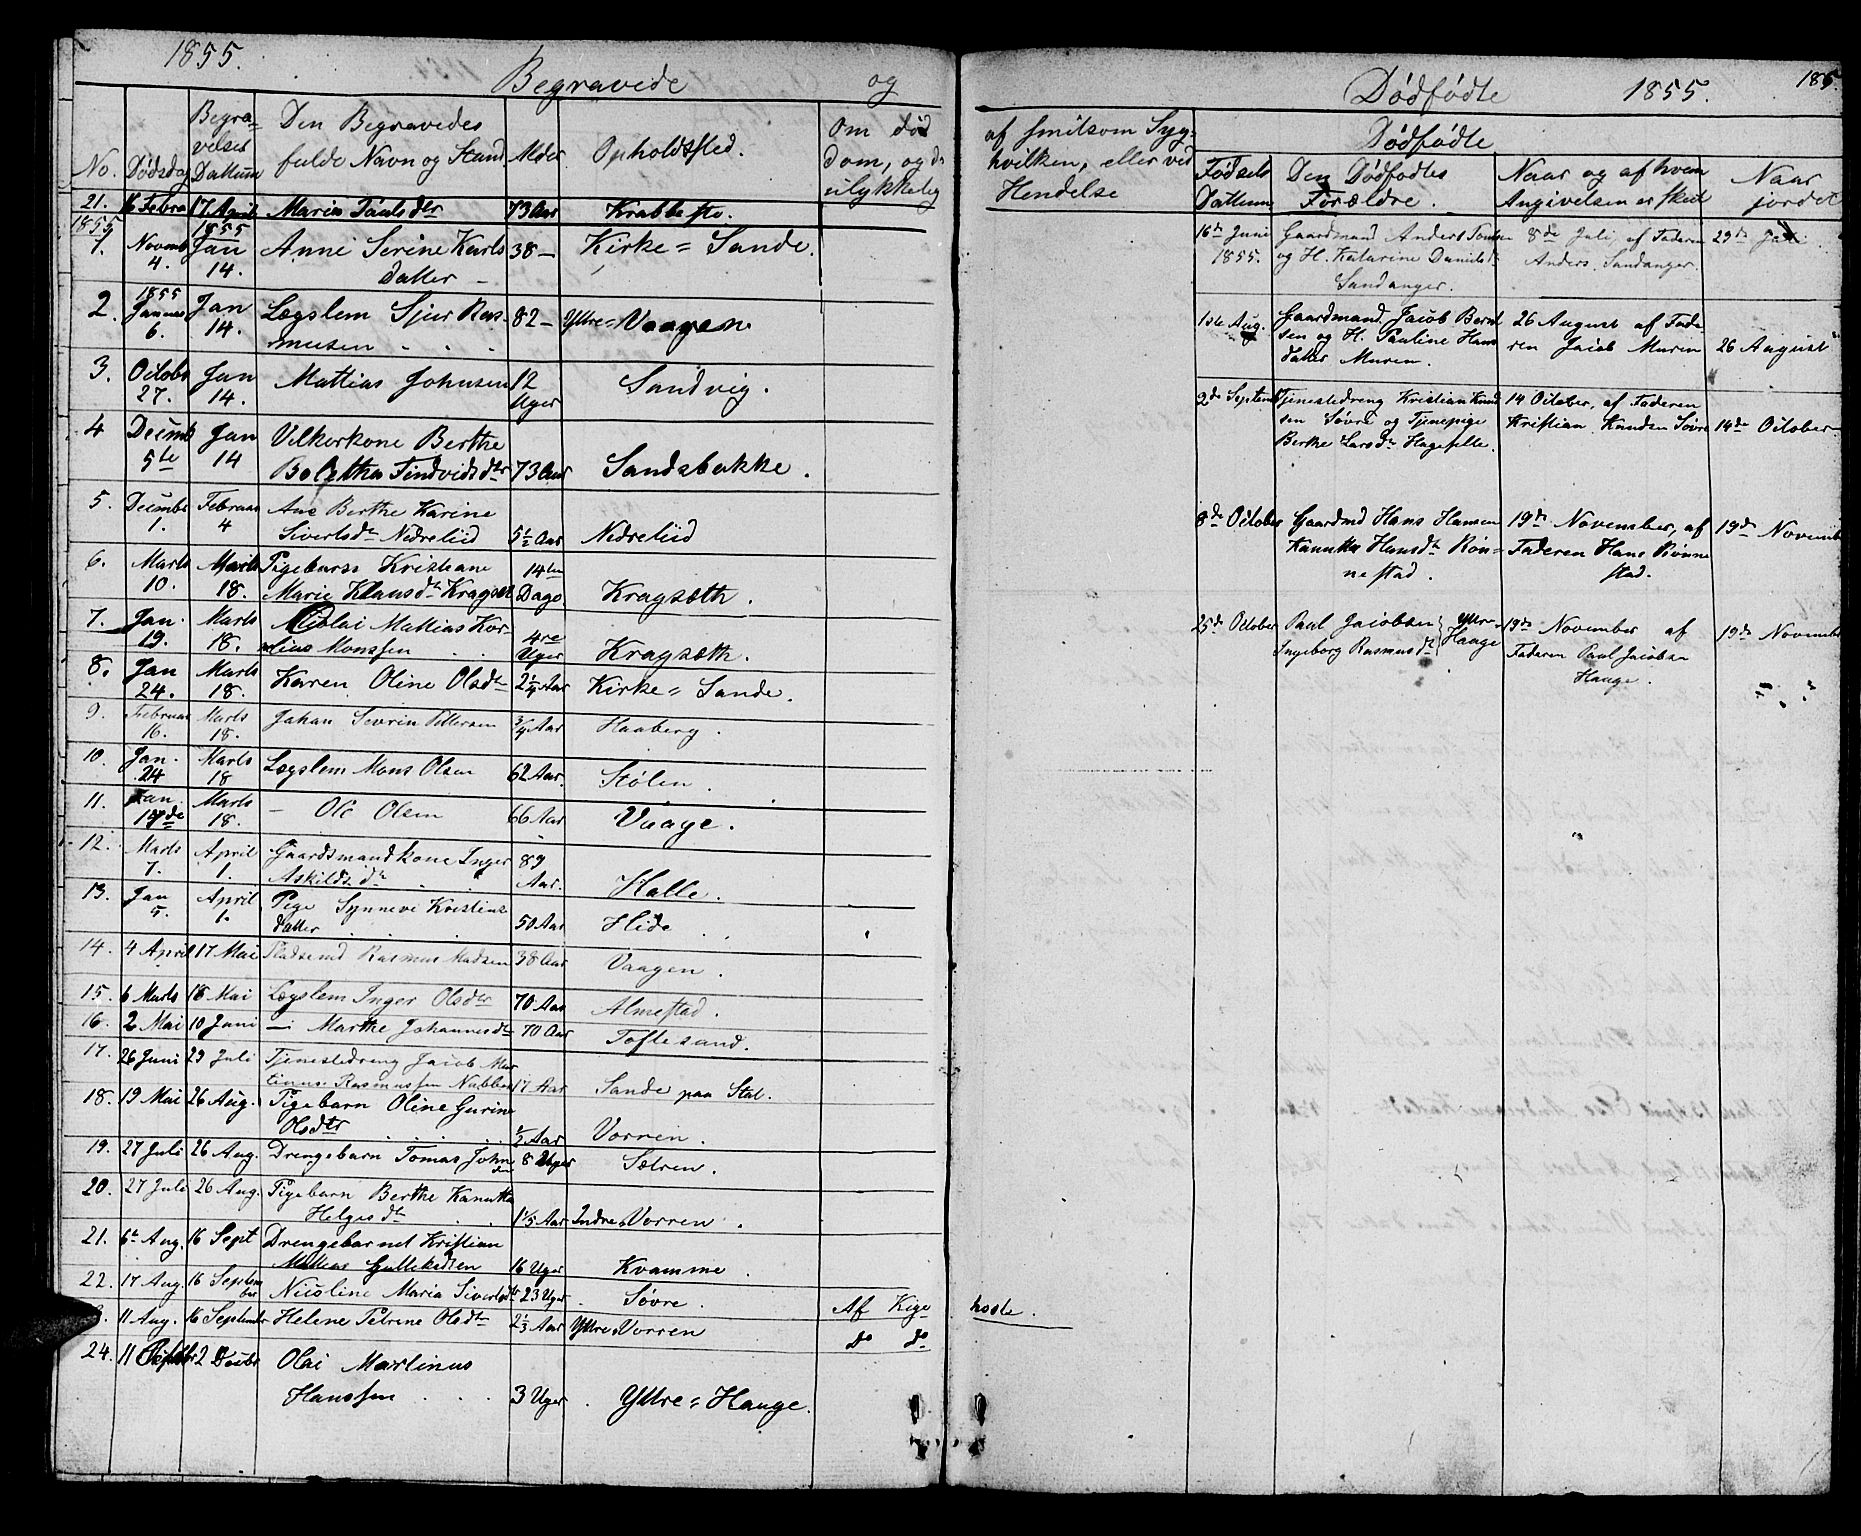 1855.
Begravede og
No. Dødsdag Begra-velses Dattum Den Begravedes fulde Navn og Stand Alder Opholdsted. Om død dom, og d ulykkelig
21. 16 Febra 17 April Maria Paulsdtr 73 Aar Krabbesto.
1855 1855
1. Novemb 4. Jan 14. Anne Serine Karls datter 38 — Kirke=Sande.
2. 1855 Januar 6. Jan 14. Lægslem Sjur Ras-musen 82 — Yttre=Vaagen
3. Octobr 27. Jan 14. Mattias Johnsen 12 Uger Sandvig.
4 Decemb 5te Jan 14 Vilkorkone Berthe Boletha Findvidsdtr 73 Aar Sandsbakke.
5. Decembr 1. Februar 4 Ane Berthe Karine Sivertsdtr Nedreliid 5½ Aar Nedreliid
6. Marts 10. Marts 18. Pigebarn Kristiane Marie Klausdtr Kragset 14ten Dage. Kragsæth.
7. Jan. 19. Marts 18. Nicolai Mattias Kor-nelius Monssen 4re Uger Kragsæth.
8. Jan 24. Marts 18. Karen Oline Olsdtr 2¼ Aar Kirke=Sande.
9. Februar 16. Marts 18. Johan Sevrin Pettersen ¾ Aar Haaberg.
10. Jan. 24 Marts 18 Lægslem Mons Olsen 62 Aar. Støren.
11. Jan. 17de Marts 18. — Ole Olsen 66 Aar Vaage.
12. Marts 7. April 1. Gaardsmandkone Inger Askildsdtr 89 Aar. Halle.
13. Jan 5. April 1. Pige Synnevi Kristens datter 50 Aar Hide
14. 4 April 17 Mai Pladsemd Rasmus Madsen 38 Aar Vaagen.
15. 6 Marts 18 Mai Lægslem Inger Olsdtr 70 Aar Almestad.
16. 2 Mai 10 Juni — Marthe Johannesdtr 70 Aar Toftesand.
17. 26 Juni 29 Juli Tjenestedreng Jacob Mar-tinus Rasmussen Nubben 17 Aar Sande paa Stat.
18. 19 Mai 26 Aug. Pigebarn Oline Gurine Olsdtr ½ Aar Vorren.
19. 27 Juli 26 Aug. Drengebarn Tomas John 8 Uger Sætren.
20. 27 Juli 26 Aug. Pigebarn Berthe Kanutha Helgesdtr 1⅓ Aar Indre Vorren.
21. 6te Aug. 16 Sept Drengebarnet Kristian Mattias Gullaksen 16 Uger Kvamme.
22. 17 Aug. 16 September Nicoline Maria Sivertsdtr 23 Uger. Søvre. Af Kige
3. 11 Aug. 16 September Helene Petrine Olsdtr 2⅓ Aar Yttre Vorren do do
24. 11 2 Decbr Olai Martinus Hanssen 3 Uger. Yttre=Hauge.
Dødfødte 1855. 185.
af smitsom Syg-hvilken, eller ved Hendelse
Dødfødte
Fødsels Dattum Den Dødfødtes Forældre. Naar og af hvem Angivelsen er skeet Naar jordet
16de Juni 1855. Gaardmand Anders Tomsen og H. Katarine Danielsdtr Sandanger. 8de Juli, af Faderen Anders Sandanger. 29de Juli.
1ste Aug. Gaardmand Jacob Bernt sen og H. Pauline Hans datter Muren. 26 August af Fade ren Jacob Murin 26 August
2de Septemb Tjenestedreng Kristian Knud sen Søvre og Tjenepige Berthe Larsdtr Hagefelle. 14 October, af Faderen Kristian Knudsen Søvre 14de October
8de October Gaardmd Hans Hansen Kanutha Hansdtr Røn=nestad. 19de November, af Faderen Hans Rønne stad. 19de Novemb
25de October Paul Jacobsen Ingeborg Rasmusdtr Yttre-Hauge 19de November af Faderen Paul Jacobsen Hauge. 19de Novemb
hoste.